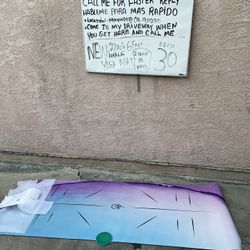 CALL ME FOR FASTER REPLY
HABLEME PARA MAS RAPIDO
• LOCATION - MAYWOOD CA 90270
• COME TO MY DRIVEWAY WHEN
YOU GET HERE AND CALL ME
NEW
YOGA MAT
EACH
30